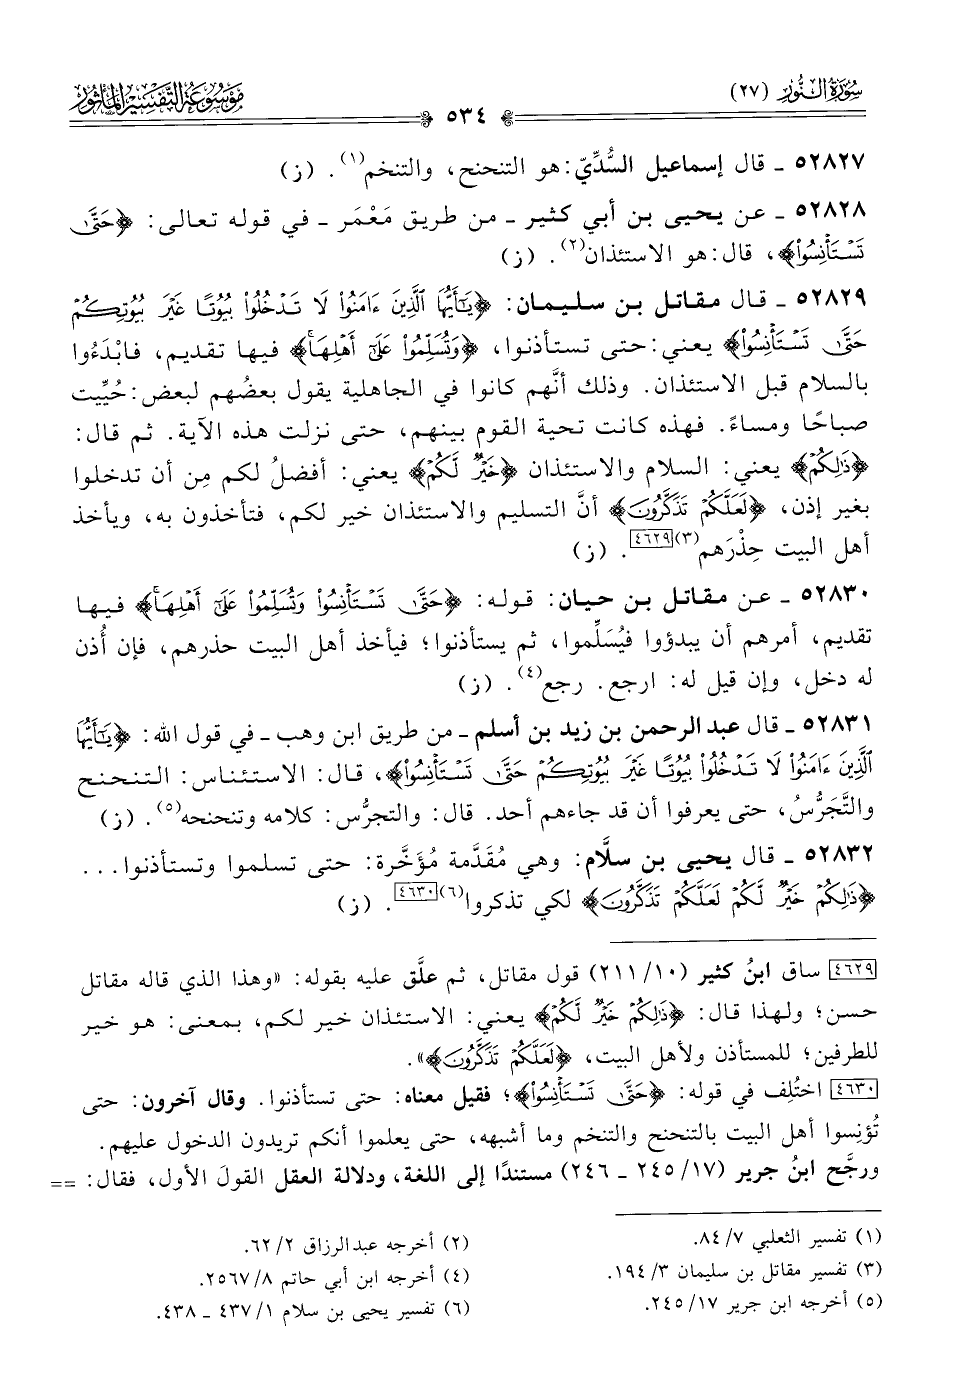 سُورَةُ النُّور (٢٧)
٥٣٤
مَوْسُوعَة التَّفْسِير المَأثُور
٥٢٨٢٧ ـ قال إسماعيل السُّدِّيّ: هو التنحنح، والتنخم(١). (ز)
٥٢٨٢٨ ـ عن يحيى بن أبي كثير ـ من طريق مَعْمَر ـ في قوله تعالى: ﴿حَتَّىٰ
تَسْتَأْنِسُوا۟﴾، قال: هو الاستئذان(٢). (ز)
٥٢٨٢٩ ـ قال مقاتل بن سليمان: ﴿يَٰٓأَيُّهَا ٱلَّذِينَ ءَامَنُوا۟ لَا تَدْخُلُوا۟ بُيُوتًا غَيْرَ بُيُوتِكُمْ
حَتَّىٰ تَسْتَأْنِسُوا۟﴾ يعني: حتى تستأذنوا، ﴿وَتُسَلِّمُوا۟ عَلَىٰٓ أَهْلِهَا﴾ فيها تقديم، فابْدَءُوا
بالسلام قبل الاستئذان. وذلك أنَّهم كانوا في الجاهلية يقول بعضُهم لبعض: حُيِّيت
صباحًا ومساءً. فهذه كانت تحية القوم بينهم، حتى نزلت هذه الآية. ثم قال:
﴿ذَٰلِكُمْ﴾ يعني: السلام والاستئذان ﴿خَيْرٌ لَّكُمْ﴾ يعني: أفضلُ لكم مِن أن تدخلوا
بغير إذن، ﴿لَعَلَّكُمْ تَذَكَّرُونَ﴾ أنَّ التسليم والاستئذان خير لكم، فتأخذون به، ويأخذ
أهل البيت حِذْرَهم(٣)[٤٦٢٩]. (ز)
٥٢٨٣٠ ـ عن مقاتل بن حيان: قوله: ﴿حَتَّىٰ تَسْتَأْنِسُوا۟ وَتُسَلِّمُوا۟ عَلَىٰٓ أَهْلِهَا﴾ فيها
تقديم، أمرهم أن يبدؤوا فيُسَلِّموا، ثم يستأذنوا؛ فيأخذ أهل البيت حذرهم، فإن أُذن
له دخل، وإن قيل له: ارجع. رجع(٤). (ز)
٥٢٨٣١ ـ قال عبد الرحمن بن زيد بن أسلم ـ من طريق ابن وهب ـ في قول الله: ﴿يَٰٓأَيُّهَا
ٱلَّذِينَ ءَامَنُوا۟ لَا تَدْخُلُوا۟ بُيُوتًا غَيْرَ بُيُوتِكُمْ حَتَّىٰ تَسْتَأْنِسُوا۟﴾، قال: الاستئناس: التنحنح
والتَّجَرُّسُ، حتى يعرفوا أن قد جاءهم أحد. قال: والتجرُّس: كلامه وتنحنحه(٥). (ز)
٥٢٨٣٢ ـ قال يحيى بن سلَّام: وهي مُقَدَّمة مُؤَخَّرة: حتى تسلموا وتستأذنوا...
﴿ذَٰلِكُمْ خَيْرٌ لَّكُمْ لَعَلَّكُمْ تَذَكَّرُونَ﴾ لكي تذكروا(٦)[٤٦٣٠]. (ز)
[٤٦٢٩] ساق ابنُ كثير (١٠/ ٢١١) قول مقاتل، ثم علَّق عليه بقوله: «وهذا الذي قاله مقاتل
حسن؛ ولهذا قال: ﴿ذَٰلِكُمْ خَيْرٌ لَّكُمْ﴾ يعني: الاستئذان خير لكم، بمعنى: هو خير
للطرفين؛ للمستأذن ولأهل البيت، ﴿لَعَلَّكُمْ تَذَكَّرُونَ﴾».
[٤٦٣٠] اختُلِف في قوله: ﴿حَتَّىٰ تَسْتَأْنِسُوا۟﴾؛ فقيل معناه: حتى تستأذنوا. وقال آخرون: حتى
تُؤنِسوا أهل البيت بالتنحنح والتنخم وما أشبهه، حتى يعلموا أنكم تريدون الدخول عليهم.
ورجَّح ابنُ جرير (١٧/ ٢٤٥ ـ ٢٤٦) مستندًا إلى اللغة، ودلالة العقل القولَ الأول، فقال: ==
(١) تفسير الثعلبي ٧/ ٨٤.
(٢) أخرجه عبد الرزاق ٢/ ٦٢.
(٣) تفسير مقاتل بن سليمان ٣/ ١٩٤.
(٤) أخرجه ابن أبي حاتم ٨/ ٢٥٦٧.
(٥) أخرجه ابن جرير ١٧/ ٢٤٥.
(٦) تفسير يحيى بن سلام ١/ ٤٣٧ ـ ٤٣٨.